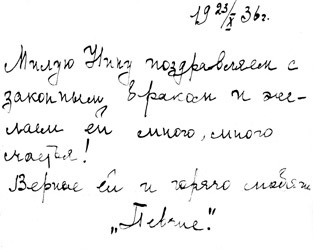 19 23/X 36г.
Милую Нину поздравляем с
законным браком и же-
лаем ей много, много
счастья!
Верные ей и горячо любящие
„Певчие."